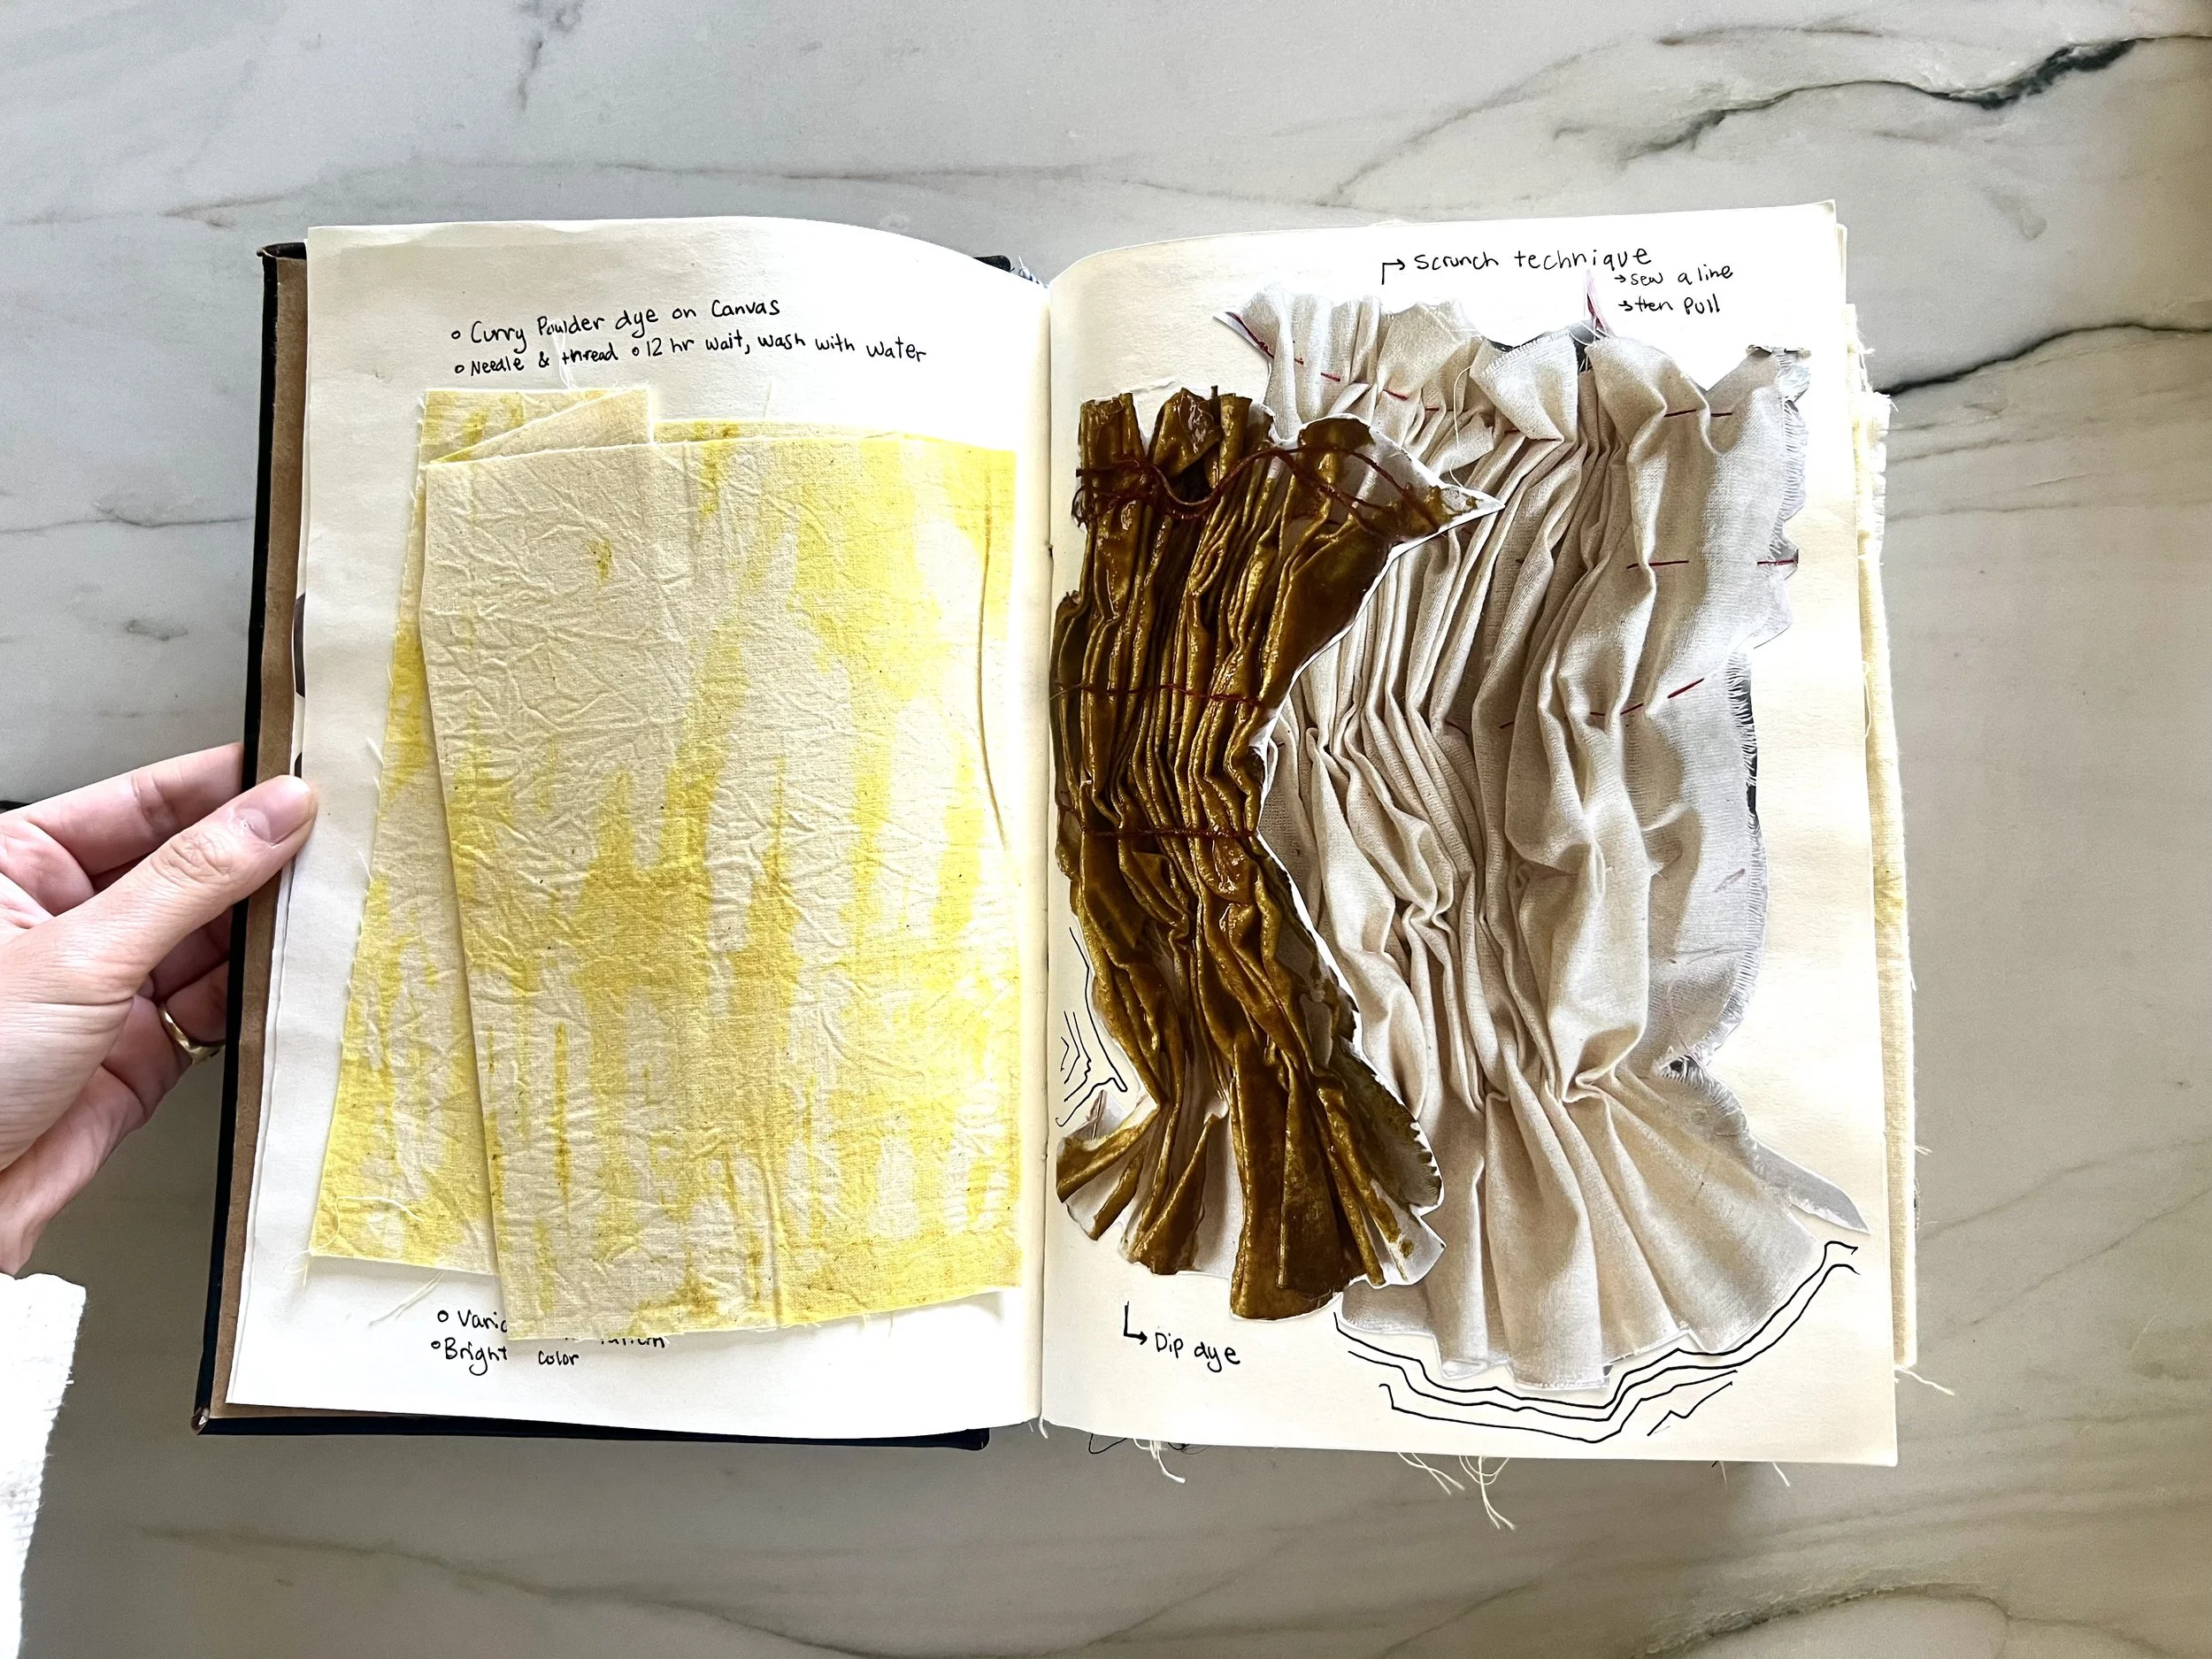 o Curry Poulder dye on Canvas
o Needle & thread o 12 hr wait, wash with water
o
o Bright color
Scrunch technique
→ sew a line
→ then pull
Dip dye